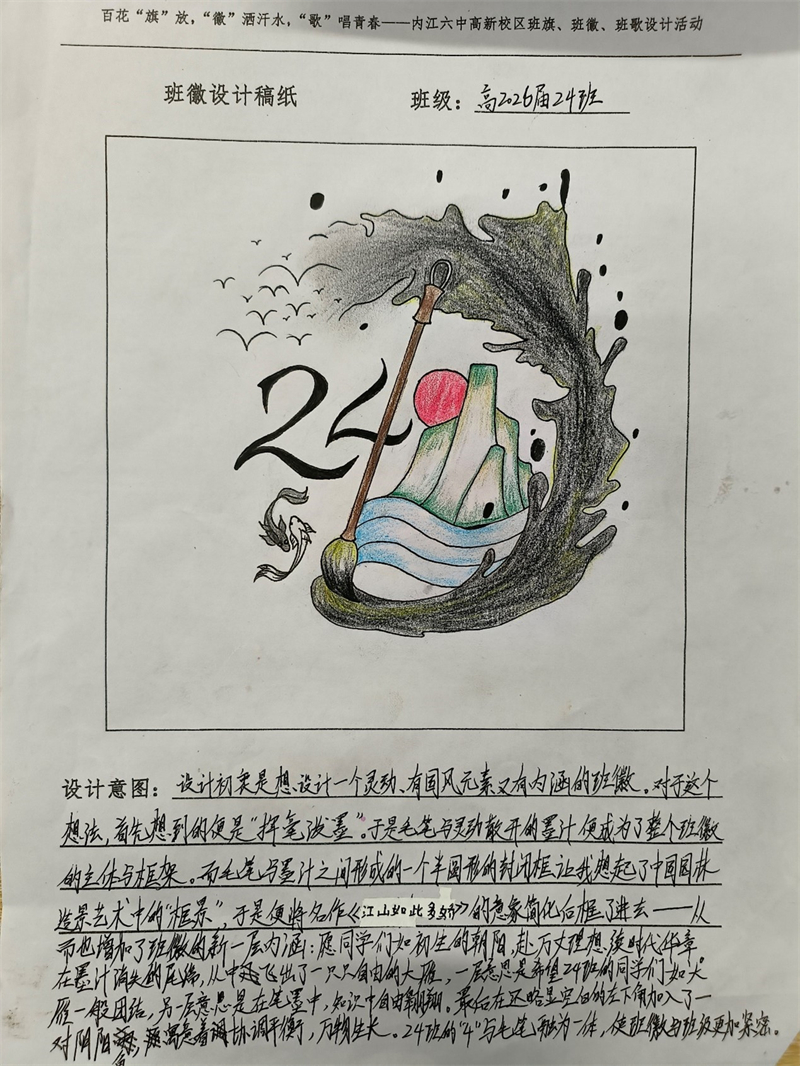 百花“旗”放,“徽”洒汗水,“歌”唱青春——内江六中高新校区班旗、班徽、班歌设计活动
班徽设计稿纸 班级:高2026届24班
24
设计意图:设计初衷是想设计一个灵动、有国风元素又有内涵的班徽。对于这个
想法,首先想到的便是“挥毫泼墨”。于是毛笔与灵动散开的墨汁便成为了整个班徽
的主体与框架。而毛笔与墨汁之间形成的一个半圆形的封闭框让我想起了中国园林
造景艺术中的“框景”,于是便将名作《江山如此多娇》的意象简化后框了进去——从
而也增加了班徽的新一层内涵:愿同学们如初生的朝阳,赴万丈理想,谱时代华章
在墨汁消失的尾端,从中飞出了一只只自由的大雁,一层意思是希望24班的同学们如大
雁一般团结,另一层意思是在笔墨中,知识中自由翱翔。最后在还略显空白的左下角加入了一
对阴阳鱼,寓意着协调平衡,万物生长。24班的“4”与毛笔融为一体,使班徽与班级更加紧密。